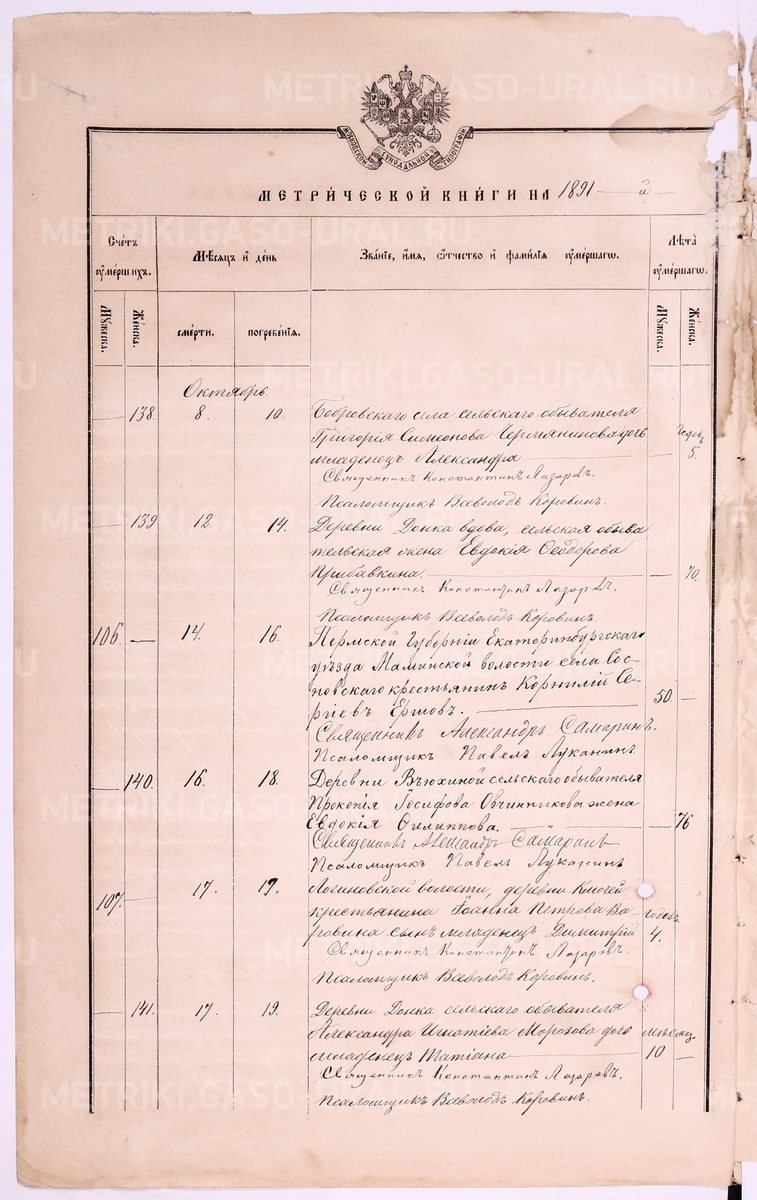 МОСКОВСКОЙ СѴНОДАЛЬНОЙ ТИПОГРАФІИ
МЕТРИ́ЧЕСКОЙ КНИ́ГИ НА 1891 — й —
Сче́тъ ᲂу҆ме́ршихъ.
Мѣ́сѧцъ и҆ де́нь
Зва́нїе, и҆́мѧ, ѻ҆́тчество и҆ фами́лїѧ ᲂу҆ме́ршагѡ.
Лѣ́та ᲂу҆ме́ршагѡ.
Мꙋ́жеска.
Же́нска.
сме́рти.
погребе́нїѧ.
Мꙋ́жеска.
Же́нска.
Октябрь
— 138. 8. 10. Бобровскаго села сельскаго обывателя
Григорія Симеонова Чермянинова дочь Годовъ
младенецъ Александра — — 5.
Священникъ Константинъ Лазаревъ.
Псаломщикъ Всеволодъ Коровинъ.
— 139 12. 14. Деревни Донка вдова, сельская обыва
тельская жена Евдокія Ѳеодорова
Прибавкина. — — 70.
Священникъ Константинъ Лазаревъ.
Псаломщикъ Всеволодъ Коровинъ.
106. — 14. 16. Пермской Губерніи Екатеринбургскаго
уѣзда Маминской волости села Сос-
новскаго крестьянинъ Корнилій Се-
ргіевъ Ершовъ. — 50. —
Священникъ Александръ Самаринъ.
Псаломщикъ Павелъ Луканинъ
— 140. 16. 18. Деревни Вьюхиной сельскаго обывателя
Прокопія Іосифова Овчинникова жена
Евдокія Филиппова. — — 76
Священникъ Александръ Самаринъ
Псаломщикъ Павелъ Луканинъ
107. — 17. 19. Логиновской волости, деревни Ключей
крестьянина Іоанна Петрова Ва- годовъ
ровина сынъ младенецъ Димитрій 4.
Священникъ Константинъ Лазаревъ.
Псаломщикъ Всеволодъ Коровинъ.
— 141. 17. 19. Деревни Донка сельскаго обывателя
Александра Игнатіева Морозова дочь мѣсяц.
младенецъ Татіана — 10 —
Священникъ Константинъ Лазаревъ.
Псаломщикъ Всеволодъ Коровинъ.
METRIKI.GASO-URAL.RU